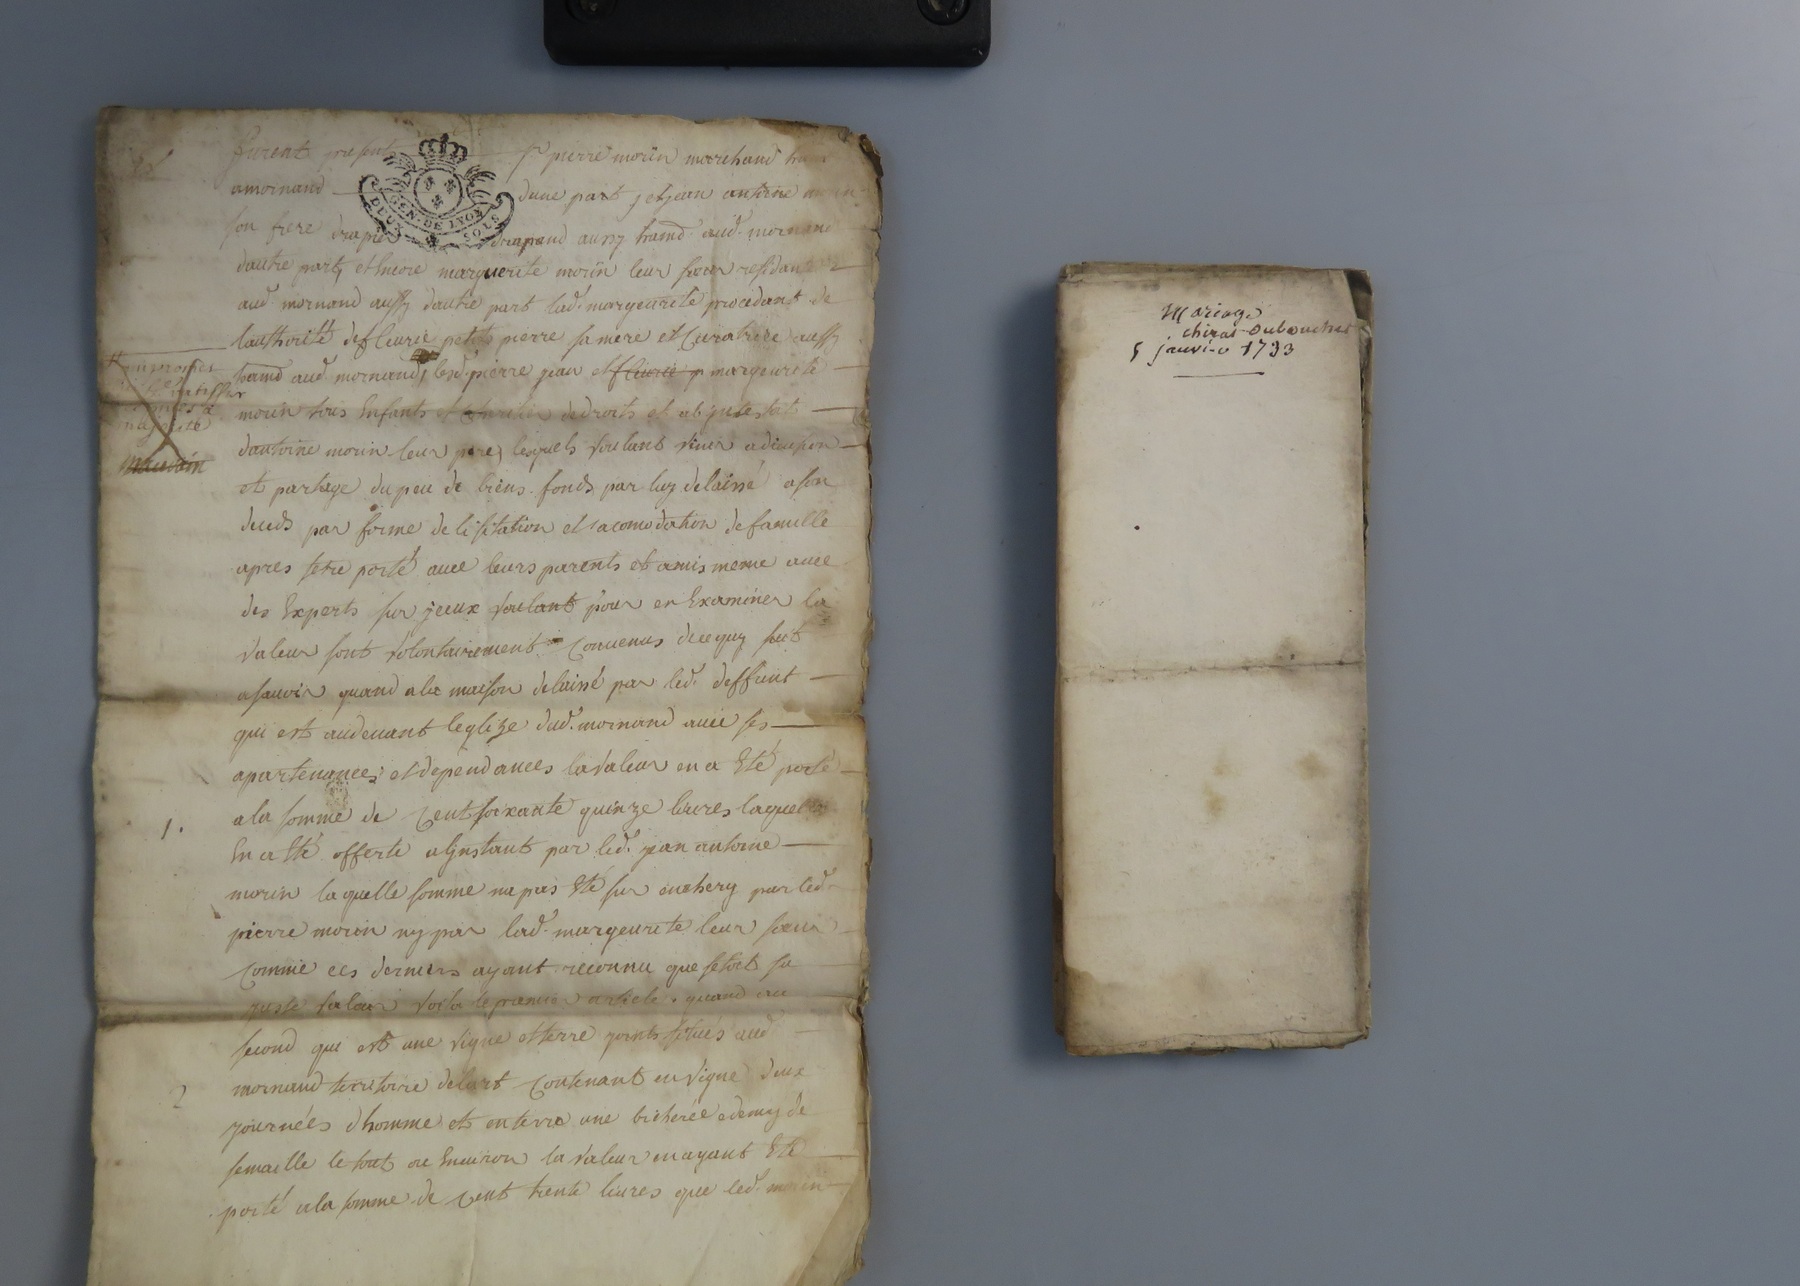 furent present sr pierre morin marchand hand
amornand dune part, et jean antoine morin
son frere drapier drapand aussy hamd. aud. mornand
dautre part, et encore marguerite morin leur soeur residante
aud. mornand aussy dautre part lad. margeurite procedant de
lauthorité de fleurie petit pierre sa mere et Curatrice aussy
hamd aud. mornand, lesd. pierre jean et fleurie margeurite
morin tous Enfants et heritiers de droits et abjntestat
dantoine morin leur pere, lesquels voulant venir a division
et partage du peu de biens fonds par luy delaissé a son
deceds par forme de lisitation et acomodation de famille
apres setre porté avec leurs parents et amis meme avec
des Experts sur jceux voulant pour en Examiner la
valeur sont volontairement Convenus de ce quy suit
a savoir quand a la maison delaissé par led. deffunt
qui est audevant leglize dud. mornand avec ses
apartenances et dependances la valeur en a Eté porté
a la somme de Cent soixante quinze livres laquelle
En a Eté offerte a ljnstant par led. jean antoine
morin laquelle somme na pas Eté sur enchery par led.
pierre morin ny par lad. margeurite leur soeur
Comme ces derniers ayant reconnu que setoit sa
juste valeur voila le premier article. quand au
second qui est une vigne et terre joints situés aud
mornand territoire delart Contenant en vigne deux
journées dhomme et en terre une bicherée e demy de
semaille le tout ou Environ la valeur en ayant Eté
porté a la somme de Cent trente livres que led. morin
ratiffier
majorité
1.
2
GEN. DE LYON
DEUX SOLS
Mariage
chirat Dubouchet
5 janvier 1733